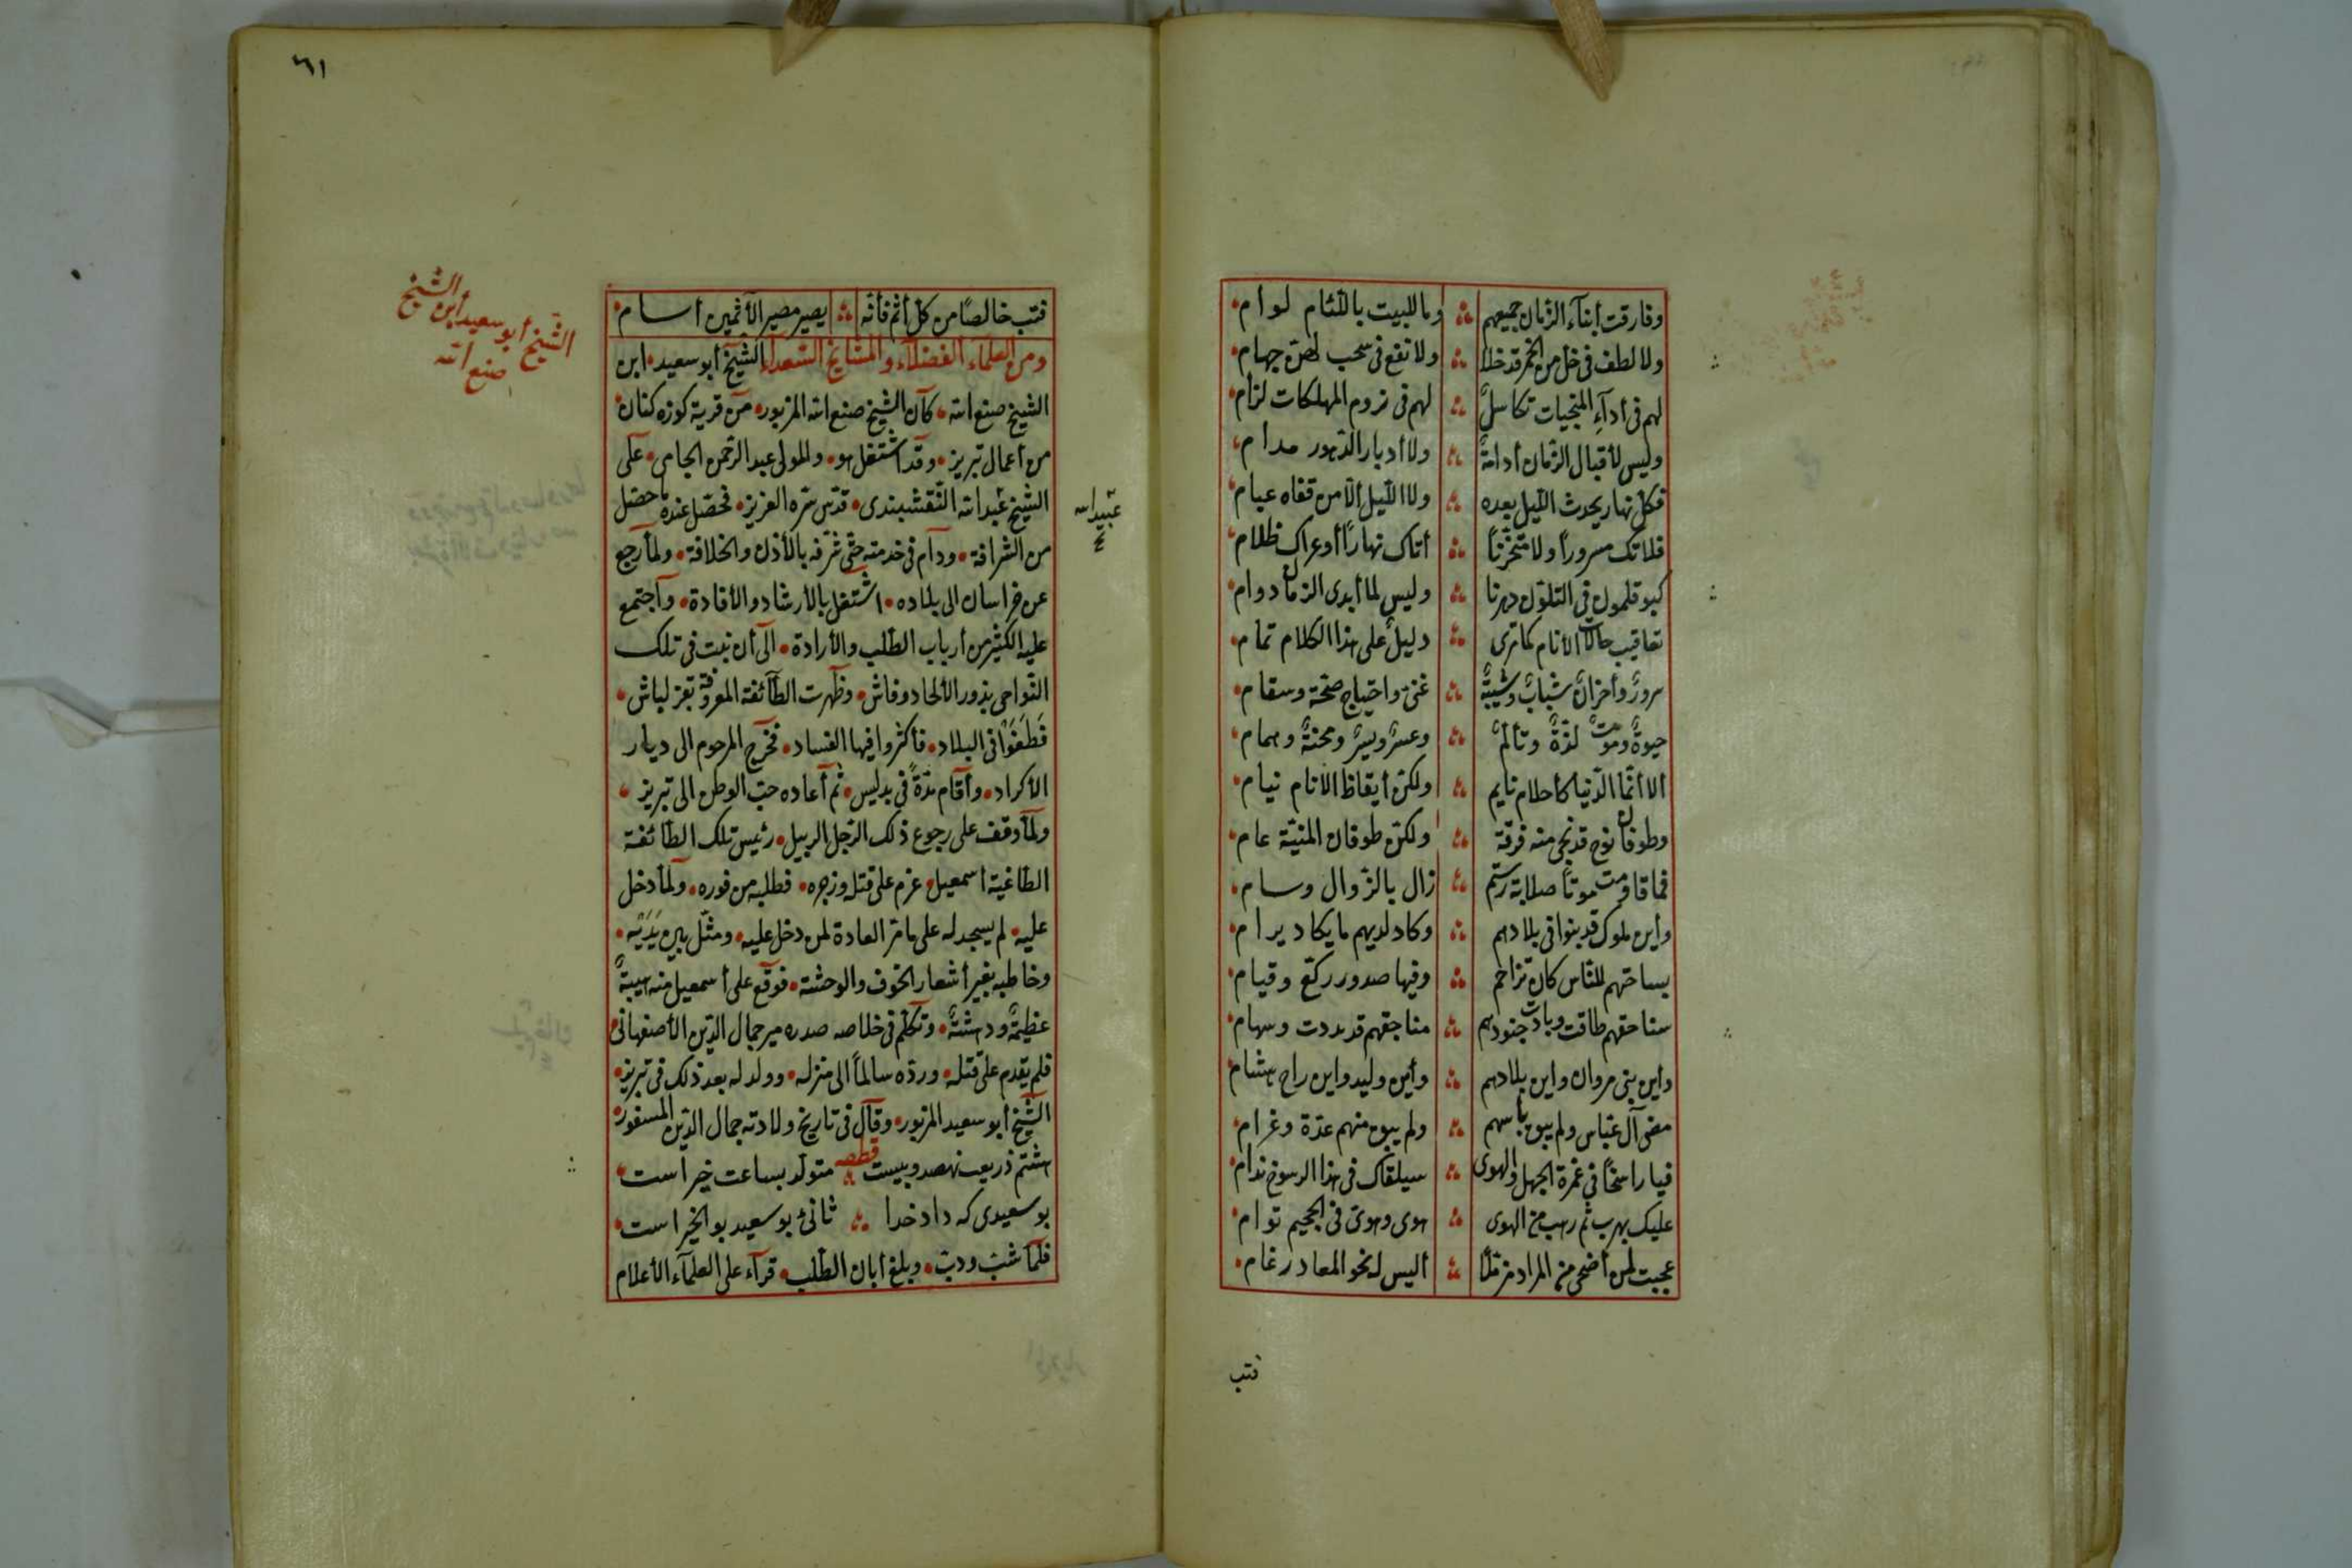 وفارقت أبنآء الزمان جميعهم ∴ وما للبيت باللئام لوام
ولا لطف فى خل من الخمر قد خلا ∴ ولا نفع فى سحب لهن جهام
لهم فى أدآء المنجيات تكاسل ∴ لهم فى لزوم المهلكات لزام
وليس لأقبال الزمان أدامة ∴ ولا أدبار الدهور مدام
فكل نهار يحدث الليل بعده ∴ ولا الليل ألا من قفاه عيام
فلا تك مسرورا ولا متحزنا ∴ أتاك نهارا أو عراك ظلام
كبو قلمون فى التلون دهرنا ∴ وليس لما أبدى الزمان دوام
تعاقيب حالات الأنام كما ترى ∴ دليل على هذا الكلام تمام
سرور وأحزان شباب وشيبة ∴ غنى واحتياج صحة وسقام
حيوة وموت لذة وتألم ∴ وعسر ويسر ومحنة وهمام
ألا أنما الدنيا كأحلام نايم ∴ ولكن أيقاظ الانام نيام
وطوفان نوح قد نجى منه فرقة ∴ ولكن طوفان المنية عام
فما قاومت موتا صلابة رستم ∴ زال بالزوال وسام
وأين ملوك قد بنوا فى بلادهم ∴ وكاد لديهم ما يكاد يرام
بساحتهم للناس كان تزاحم ∴ وفيها صدور ركع وقيام
سناحقهم طاقت وبادت جنودهم ∴ مناجقهم قد بددت وسهام
واين بنى مروان واين بلادهم ∴ وأين وليد واين راح هشام
مضى آل عباس ولم يبق بأسهم ∴ ولم يبق منهم عدة وغرام
فيا راسخا فى غمرة الجهل والهوى ∴ سيلقاك فى هذا الرسوخ ندام
عليك بهرب ثم رهب من الهوى ∴ هوى وهوى فى الجحيم توام
عجبت لمن أضحى من المراد مزملا ∴ أليس له نحو المعاد رغام
فتب
٦١
فتب خالصا من كل أثم فأنه ∴ يصير مصير الآثمين أسام
ومن العلمآء الفضلآء والمشايخ السعدآء الشيخ أبو سعيد ابن
الشيخ صنع الله كان الشيخ صنع الله المزبور من قرية كوزه كنان
من أعمال تبريز وقد اشتغل هو والمولى عبد الرحمن الجامى على
الشيخ عبد الله النقشبندى قدس سره العزيز فحصل عنده ما حصل
من الشرافة ودام فى خدمته حتى شرفه بالأذن والخلافة ولما رجع
عن خراسان الى بلاده اشتغل بالأرشاد والأفادة وأجتمع
عليه الكثير من أرباب الطلب والأرادة الى أن نبت فى تلك
النواحى بذور الألحاد وفاش وظهرت الطآئفة المعروفة بقزلباش
فطغوا فى البلاد فأكثروا فيها الفساد فخرج المرحوم الى ديار
الأكراد وأقام مدة فى بدليس ثم أعاده حب الوطن الى تبريز
ولما وقف على رجوع ذلك الرجل الربيل رئيس تلك الطائفة
الطاغية اسمعيل عزم على قتله وزجره فطلبه من فوره ولما دخل
عليه لم يسجد له على ما مر العادة لمن دخل عليه ومثل بين يديه
وخاطبه بغير أشعار الخوف والوحشة فوقع على أسمعيل منه هيبة
عظيمة ودهشة وتكلم فى خلاصه صدره مير جمال الدين الأصفهانى
فلم يقدم على قتله ورده سالما الى منزله وولد له بعد ذلك فى تبريز
الشيخ أبو سعيد المزبور وقال فى تاريخ ولادته جمال الدين المسفور
قطعه
هشتم ذربعـ نهصد وبيست ∴ متولد بساعت خير است
بو سعيدى كه داد خدا ∴ ثانئ بو سعيد بو الخير است
فلما شب ودب وبلغ أبان الطلب قرآء على العلمآء الأعلام
الشيخ أبو سعيد ابن الشيخ
صنع الله
عبيد الله